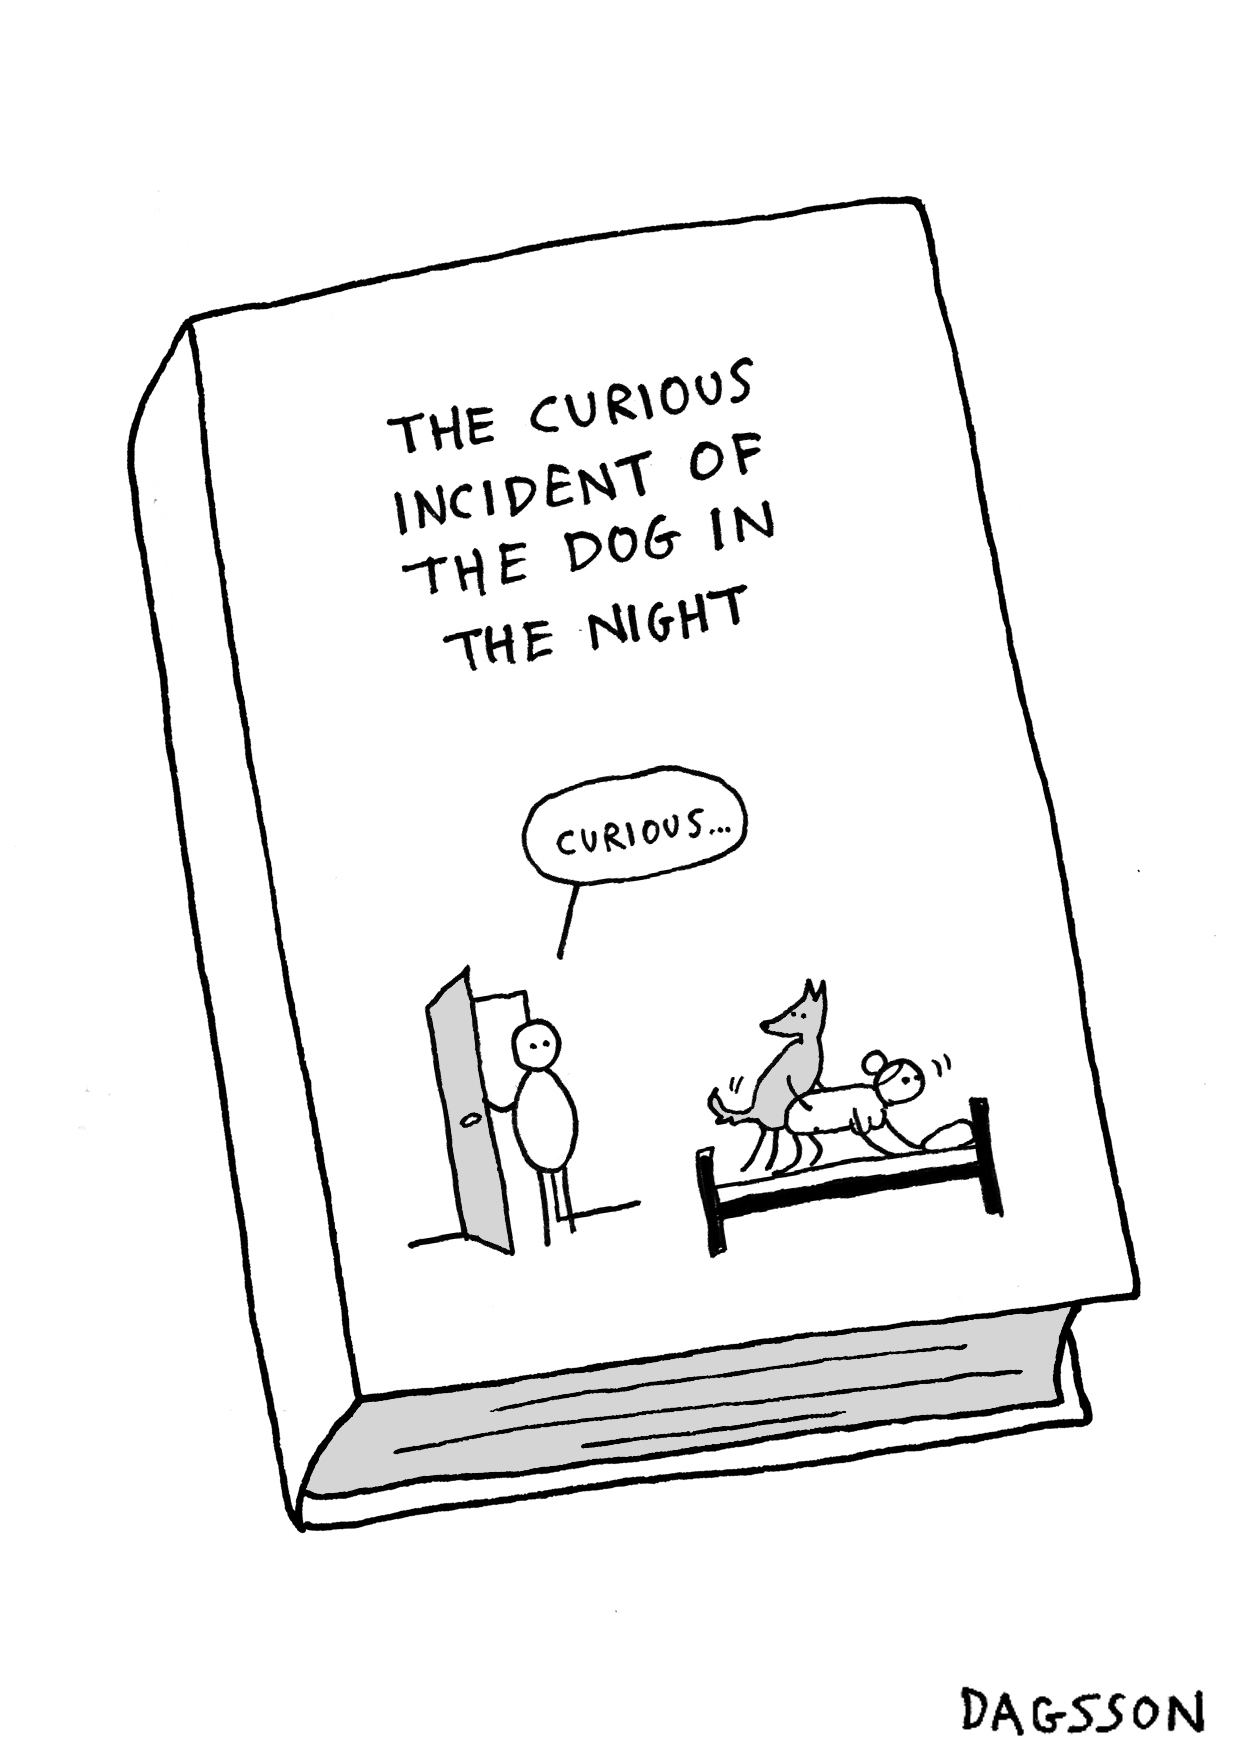 THE CURIOUS
INCIDENT OF
THE DOG IN
THE NIGHT
CURIOUS...
DAGSSON